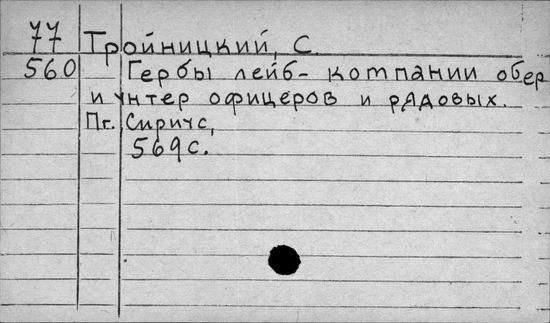 77 Тройницкий, С.
560 Гербы лейб-компании обер
и унтер офицеров и рядовых.
Пг. Сириус,
569 с.